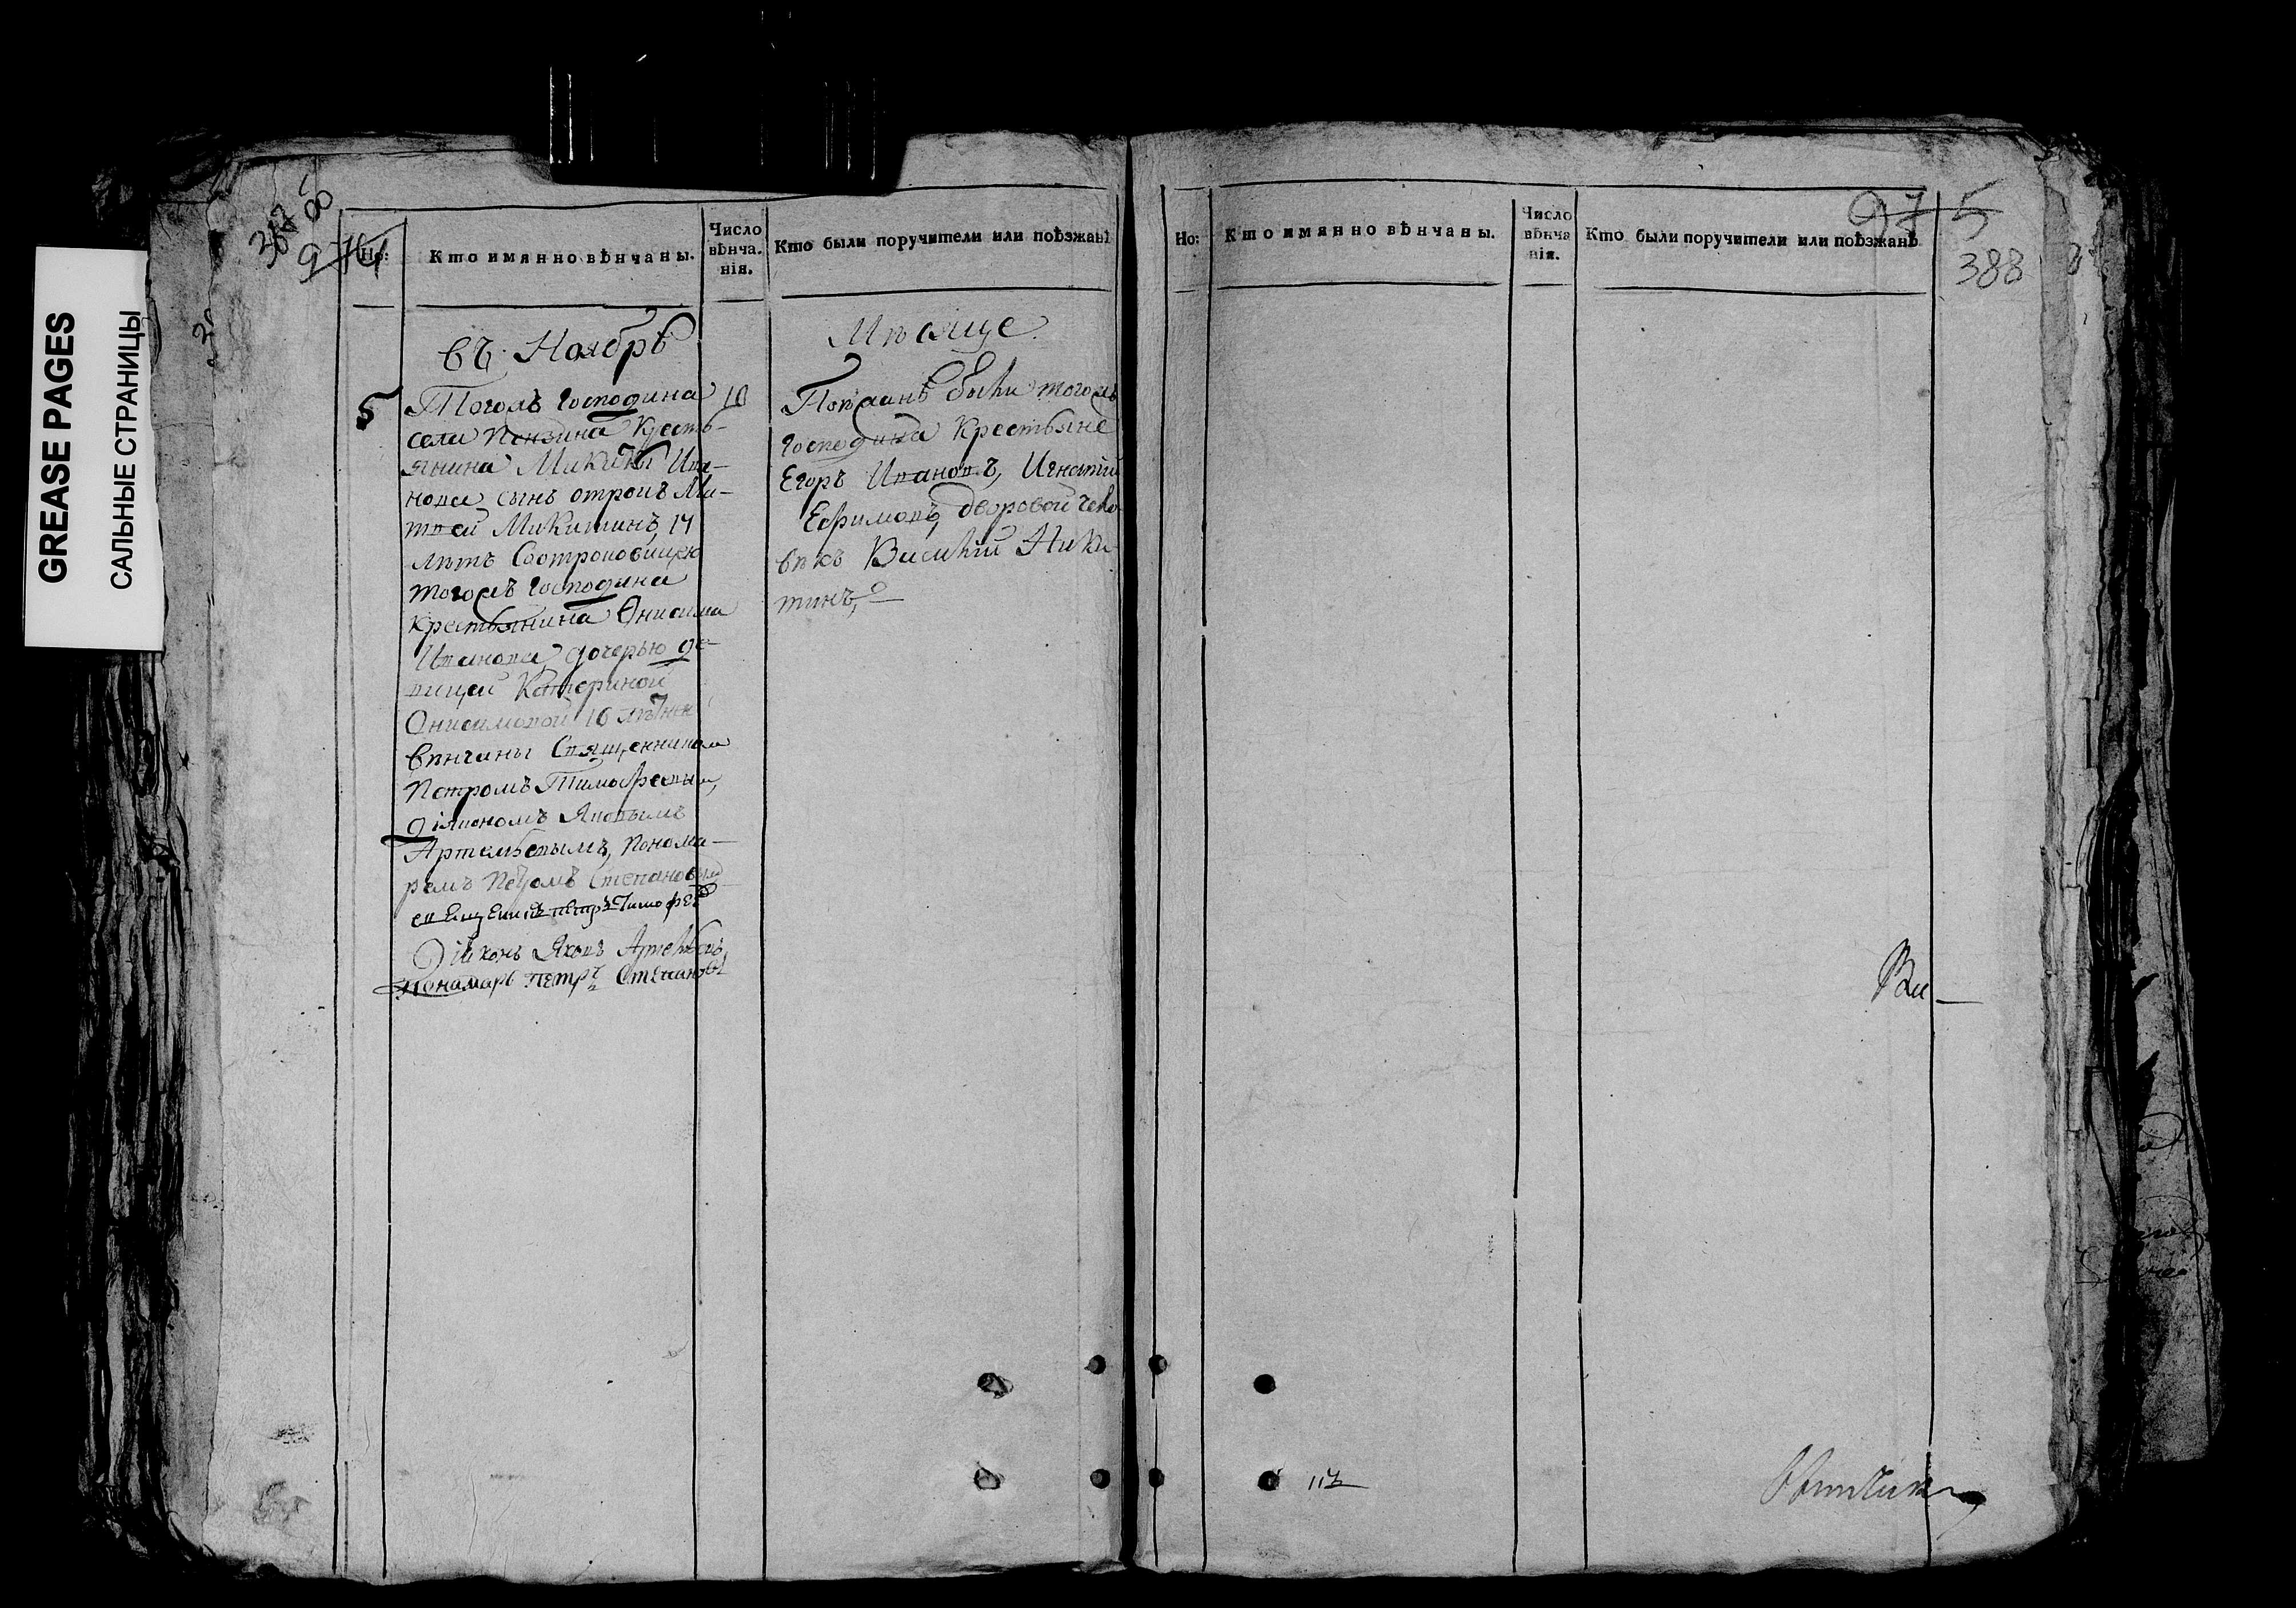 GREASE PAGES
САЛЬНЫЕ СТРАНИЦЫ
Но:
Кто имянно вѣнчаны.
Число вѣнча. нія.
Кто были поручители или поѣзжанѣ
въ Ноябрѣ
Мѣсяце
5
Тогожъ Господина
села Пензина Кресть-
янина Микиты Ива-
нова сынъ отрокъ Ма-
твей Микитинъ, 17
лѣтъ Соотроковицею
тогожъ Господина
крестьянина Онисима
Иванова, дочерью де-
вицей Катериной
Онисимовой 16 лѣтней
вѣнчаны Священникам
Петромъ Тимофеевым,
Діяконамъ Яковымъ
Артемьевымъ, понома-
ремъ Петромъ Степановым
священникъ петръ Тимофеев
Діяконъ Яковъ Артемьевъ
пономарь Петръ Степановъ
10
Поѣзжанѣ были тогожъ
Господина Крестьяне
Егоръ Ивановъ, Игнатій
Ефимовъ, дворовой чело
вѣкъ Василій Ники
тинъ,
Но:
Кто имянно вѣнчаны.
Число вѣнча нія.
Кто были поручители или поѣзжанѣ
975
388